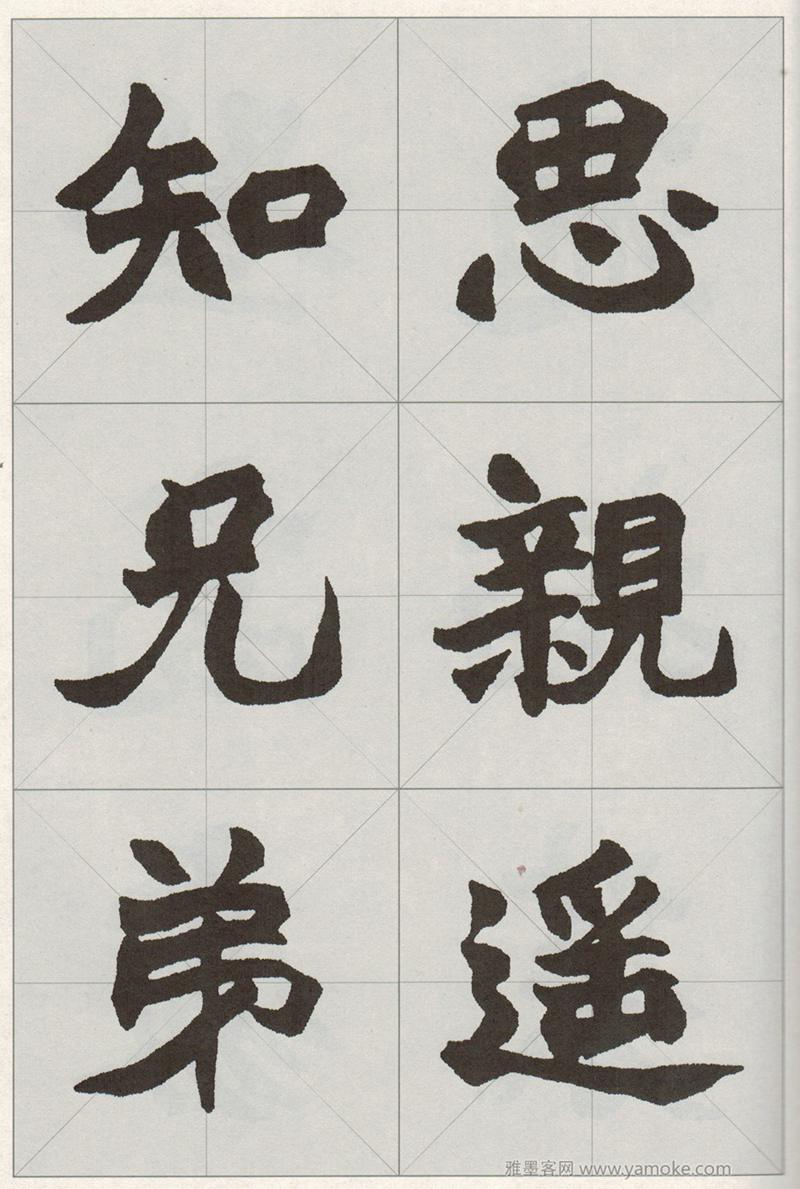 思親遥
知兄弟
雅墨客网 www.yamoke.com